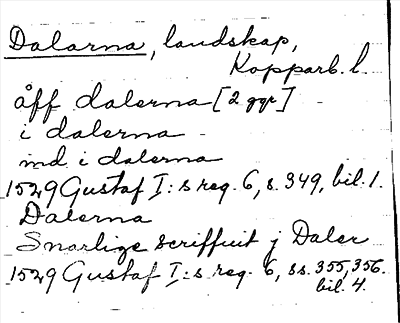 Dalarna, landskap,
Kopparb. l.
åff dalerna [2 ggr]
i dalerna
ind i dalerna
1529 Gustaf I:s reg. 6, s. 349, bil. 1.
Dalerna
Snarlige scriffuit j Daler
1529 Gustaf I:s reg. 6, ss. 355, 356.
bil. 4.